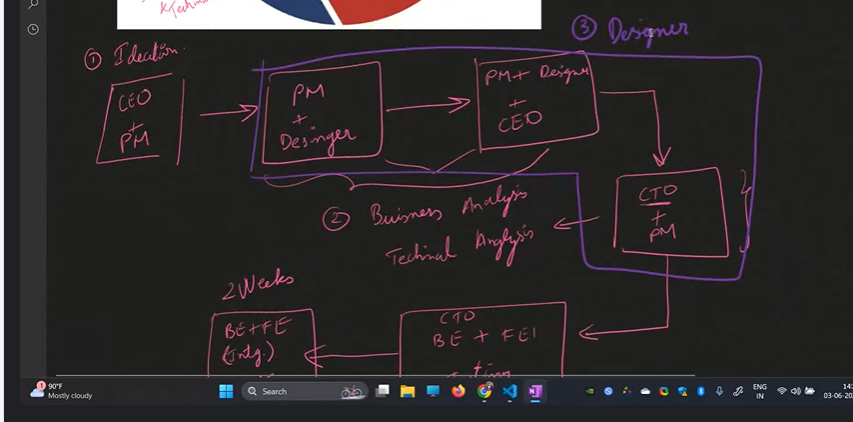 ③ Designer
① Ideation.
CEO
+
PM
PM
+
Desinger
PM + Designer
+
CEO
CTO
+
PM
② Buisness Analysis
Technical Analysis
2 Weeks
BE + FE
(Intg.)
CTO
BE + FE
90°F
Mostly cloudy
Search
ENG
IN
14:
03-06-20